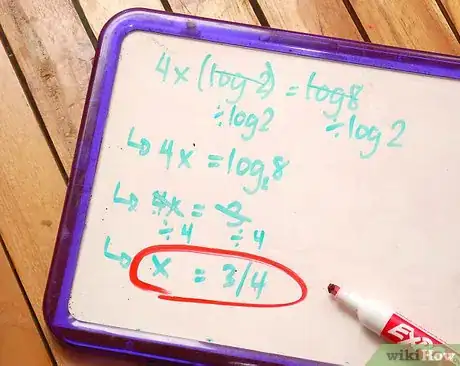 4x (log 2) = log 8
÷ log 2 ÷ log 2
↳ 4x = log₂8
↳ 4x = 3
÷ 4 ÷ 4
↳ x = 3/4
EXP
wikiHow